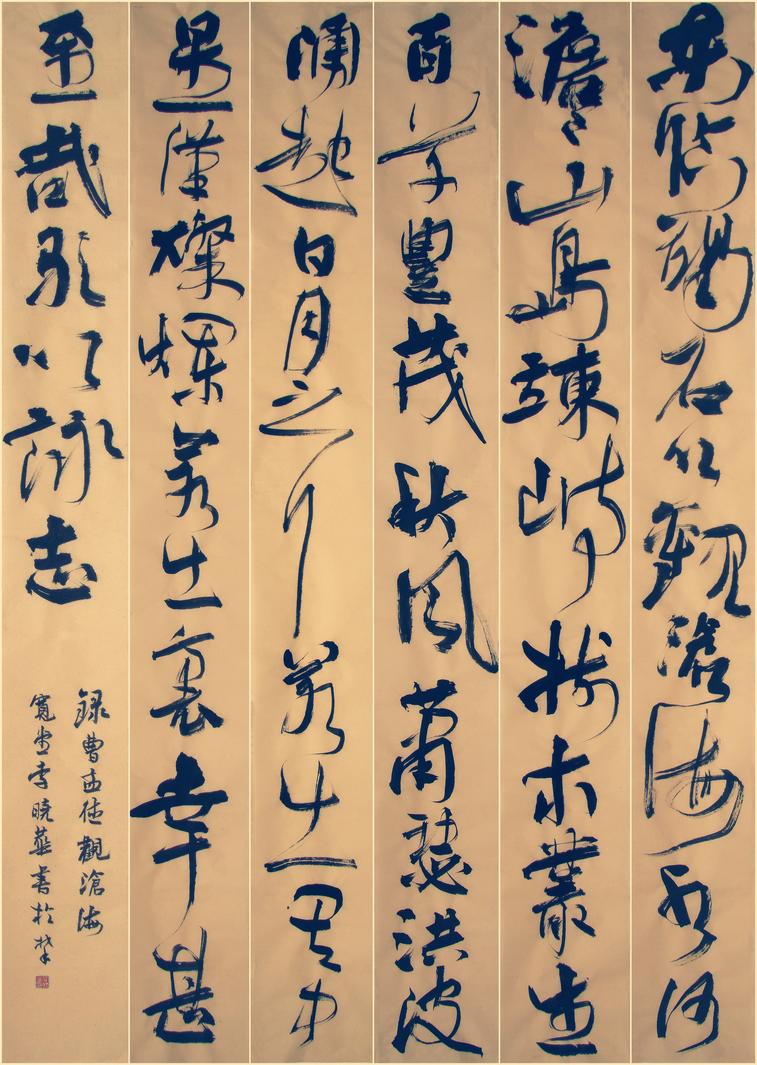 東臨碣石以觀滄海水何
澹々山島竦峙樹木叢生
百草豐茂秋風蕭瑟洪波
湧起日月之行若出其中
星漢燦爛若出裏幸甚
至哉歌以詠志
錄曹孟德觀滄海
寬堂李曉華書於